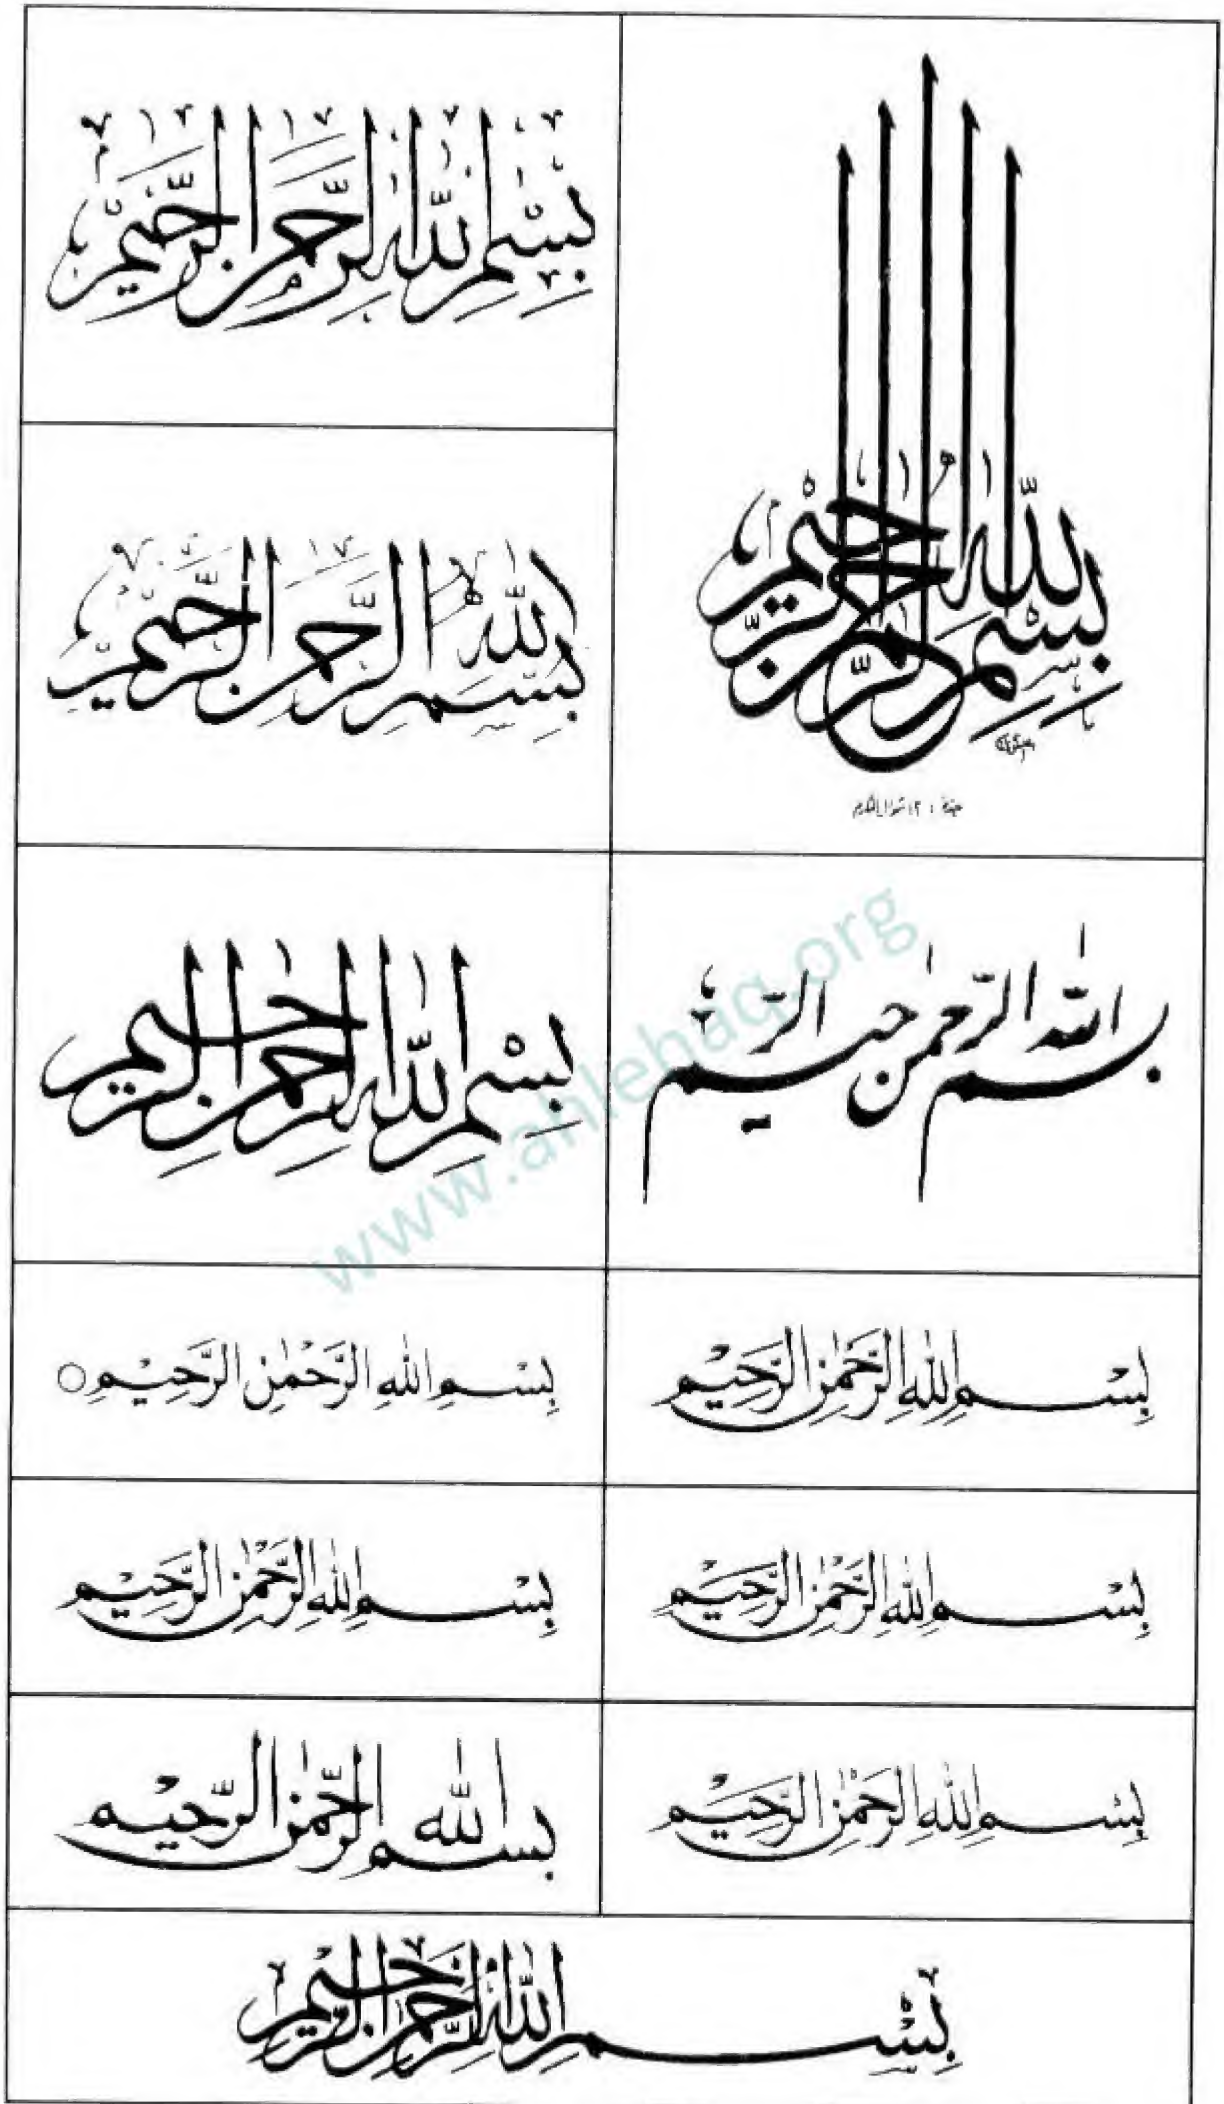 بِسْمِ اللهِ الرَّحْمٰنِ الرَّحِيْمِ
بِسْمِ اللهِ الرَّحْمٰنِ الرَّحِيْمِ
بِسْمِ اللهِ الرَّحْمٰنِ الرَّحِيْمِ
بسم الله الرّحمٰن الرّحيم
بِسْمِ اللهِ الرَّحْمٰنِ الرَّحِيمِ
www.ahlehaq.org
بِسْمِ اللهِ الرَّحْمٰنِ الرَّحِيْمِ
بِسْمِ اللهِ الرَّحْمٰنِ الرَّحِيْمِ ○
بِسْمِ اللهِ الرَّحْمٰنِ الرَّحِيْمِ
بِسْمِ اللهِ الرَّحْمٰنِ الرَّحِيْمِ
بِسْمِ اللهِ الرَّحْمٰنِ الرَّحِيْمِ
بسم الله الرّحمٰن الرّحيْم
بِسْمِ اللهِ الرَّحْمٰنِ الرَّحِيْمِ